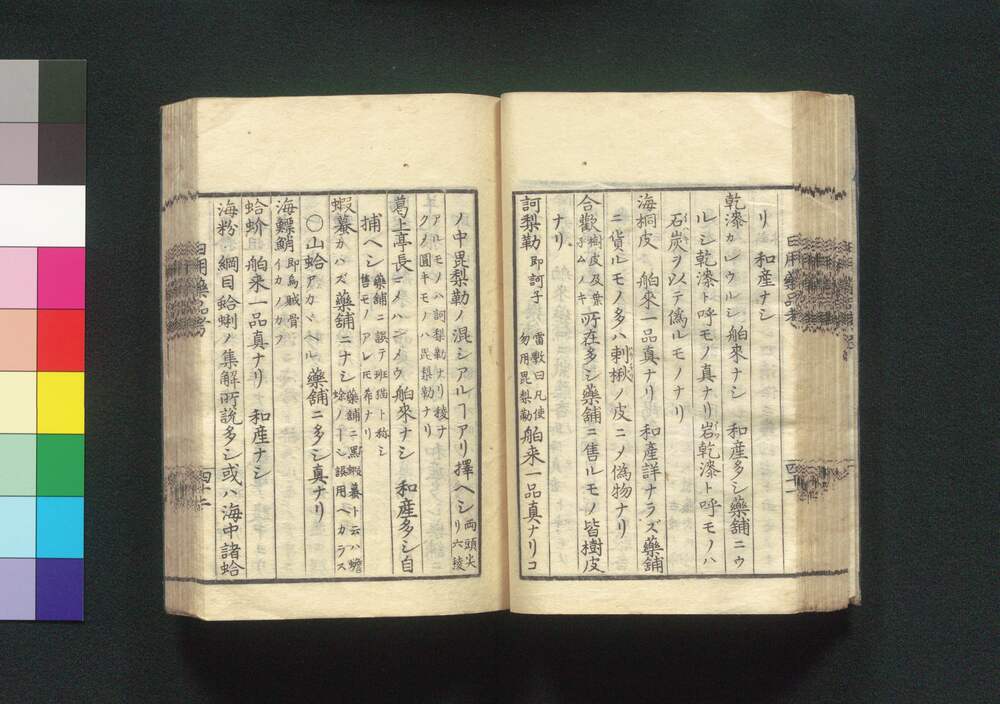 リ　和産ナシ
乾漆カレウルシ　舶来ナシ　和産多シ藥舗ニウ
ルシ乾漆ト呼モノ真ナリ岩乾漆ト呼モノハ
石炭ヲ以テ偽ルモノナリ
海桐皮　舶來一品真ナリ　和産詳ナラズ藥舗
ニ貨ルモノ多ハ刺楸ノ皮ニノ偽物ナリ
合歡樹皮及葉子ムノキ所在多シ藥舗ニ售ルモノ皆樹皮
ナリ
訶梨勒即訶子　雷斆曰凡使勿用毘梨勒舶来一品真ナリコ
日用藥品考
四十一
ノ中毘梨勒ノ混シアルヿアリ擇ヘシ両頭尖リ六稜
アルモノハ訶梨勒ナリ稜ナクノ圓キモノハ毘梨勒ナリ
葛上亭長ニメハンメウ　舶來ナシ　和産多シ自
捕ヘシ藥舗ニ誤テ班猫ト称シ售モノアレ𪜈希ナリ
蝦蟇カハズ藥舗ニナシ藥舗ニ黒蝦蟇ト云ハ蟾蜍ノヿシ誤用ヘカラス
○山蛤アカヾヘル　藥舗ニ多シ真ナリ
海鰾鮹即烏賊骨イカノカフ
蛤蚧　舶来一品真ナリ　和産ナシ
海粉　綱目蛤蜊ノ集解所説多シ或ハ海中諸蛤
日用藥品考
四十二